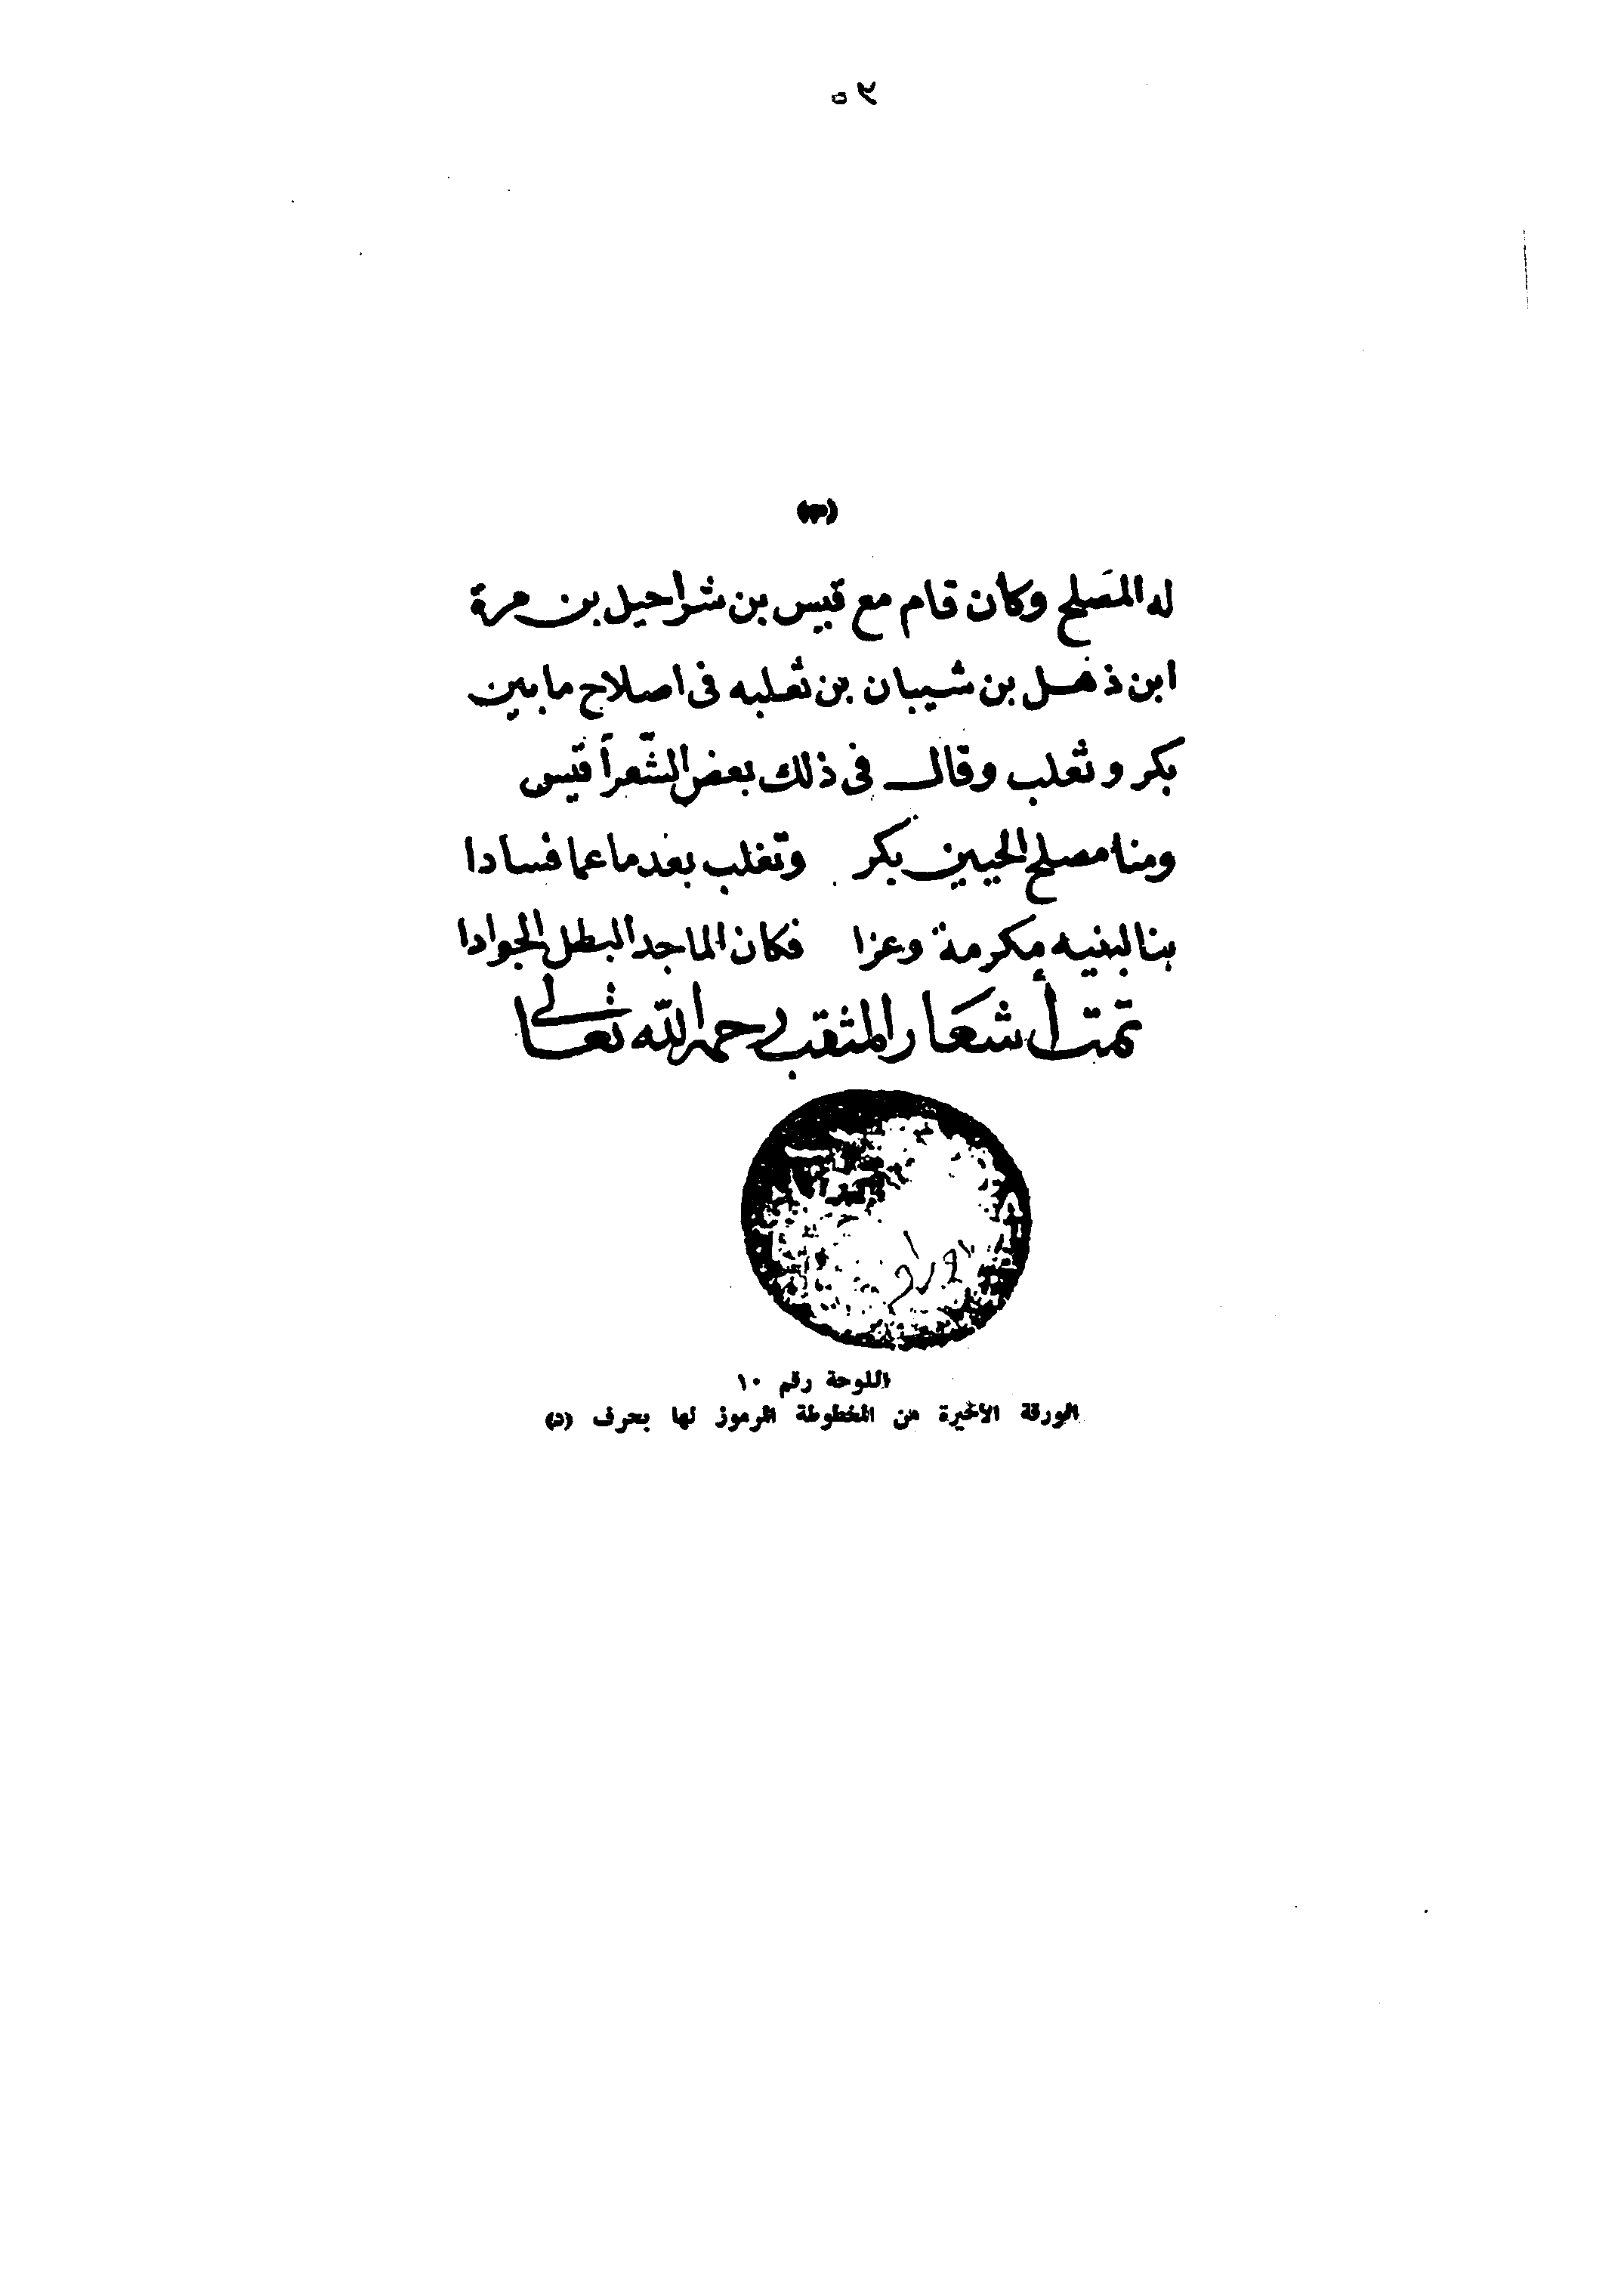 ٥٢
له المَصلح وكان قام مع قيس بن شراحيل بن مرة
ابن ذهل بن شيبان بن ثعلبه فى اصلاح مابين
بكر و ثعلب وقال فى ذلك بعض الشّعراً قيس
ومنا مصلح الحيين بكر وتغلب بعد ما عما فسادا
بنا لبنيه مكرمة وعزا فكان الماجد البطل الجوادا
تمت أشعار المثقب رحمه الله تعالى
اللوحة رقم ١٠
الورقة الأخيرة من المخطوطة المرموز لها بحرف (د)